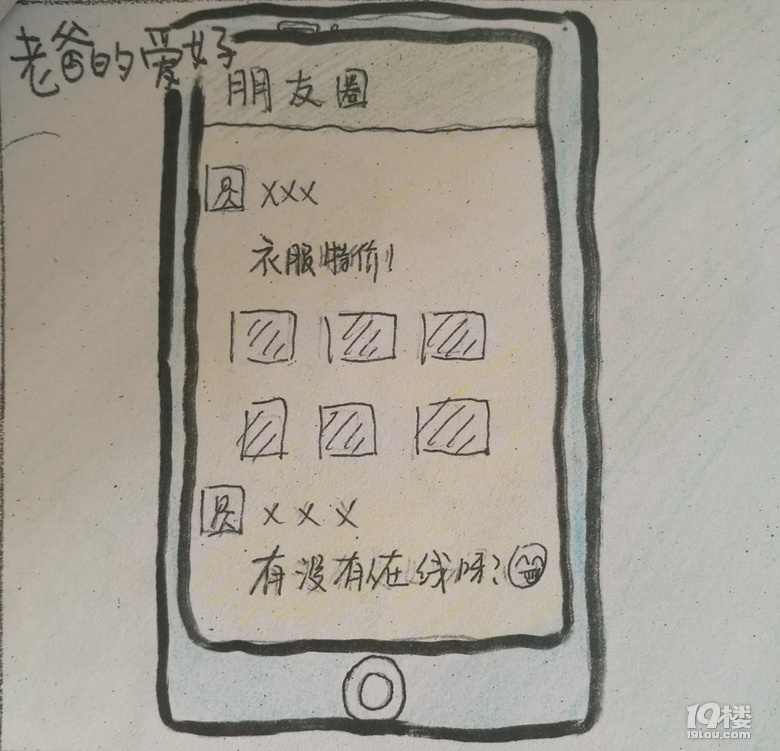 老爸的爱好
朋友圈
XXX
衣服特价!
XXX
有没有人在线呀?
19楼
19lou.com